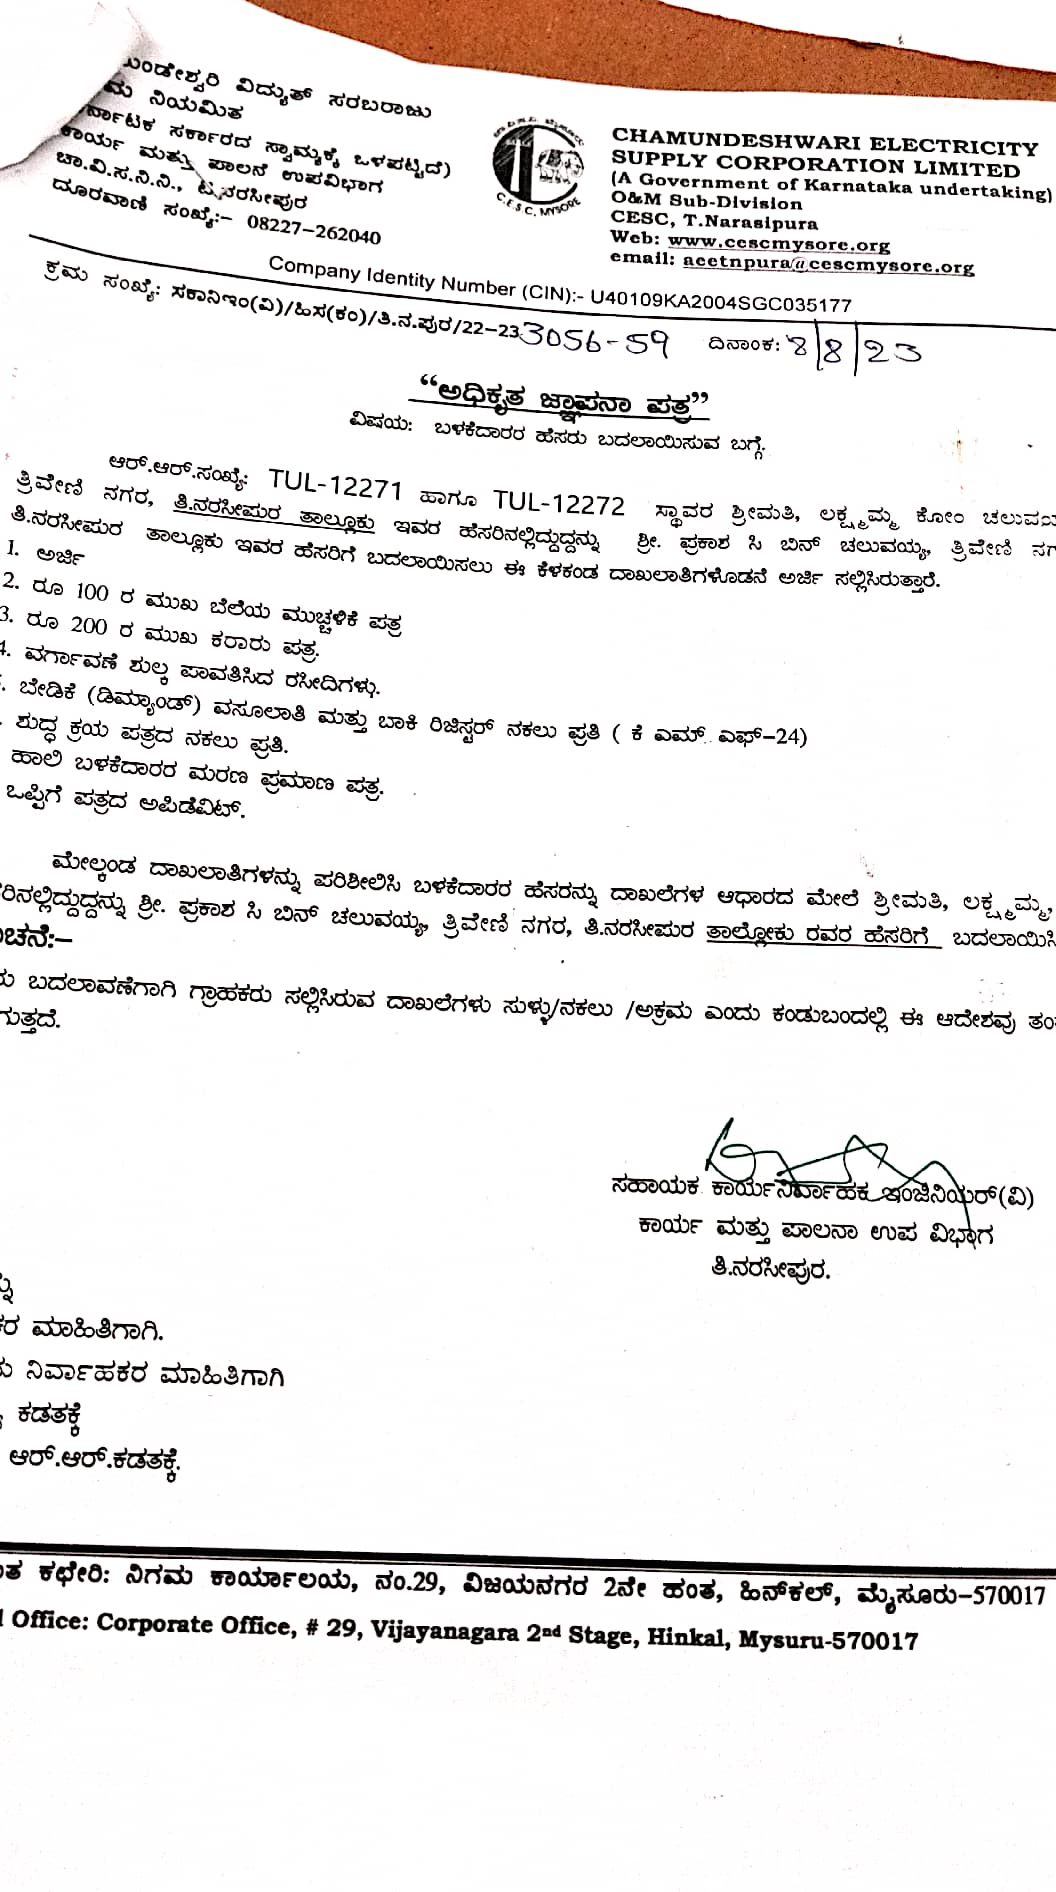 ವಿದ್ಯುತ್ ಸರಬರಾಜು
ನಿಯಮಿತ
ಸರ್ಕಾರದ ಸ್ವಾಮ್ಯಕ್ಕೆ ಒಳಪಟ್ಟಿದೆ)
ಕಾರ್ಯ ಮತ್ತು ಪಾಲನೆ ಉಪವಿಭಾಗ
ಚಾ.ವಿ.ಸ.ನಿ.ನಿ., ಟಿ.ನರಸೀಪುರ
ದೂರವಾಣಿ ಸಂಖ್ಯೆ:- 08227-262040
C.E.S.C. MYSORE
CHAMUNDESHWARI ELECTRICITY
SUPPLY CORPORATION LIMITED
(A Government of Karnataka undertaking)
O&M Sub-Division
CESC, T.Narasipura
Web: www.cescmysore.org
email: aeetnpura@cescmysore.org
Company Identity Number (CIN):- U40109KA2004SGC035177
ಕ್ರಮ ಸಂಖ್ಯೆ: ಸಕಾನಿಇಂ(ವಿ)/ಹಿಸ(ಕಂ)/ತಿ.ನ.ಪುರ/22-23 3056-59 ದಿನಾಂಕ: 8/8/23
“ಅಧಿಕೃತ ಜ್ಞಾಪನಾ ಪತ್ರ”
ವಿಷಯ: ಬಳಕೆದಾರರ ಹೆಸರು ಬದಲಾಯಿಸುವ ಬಗ್ಗೆ.
ಆರ್.ಆರ್.ಸಂಖ್ಯೆ: TUL-12271 ಹಾಗೂ TUL-12272 ಸ್ಥಾವರ ಶ್ರೀಮತಿ, ಲಕ್ಷ್ಮಮ್ಮ ಕೋಂ
ತ್ರಿವೇಣಿ ನಗರ, ತಿ.ನರಸೀಪುರ ತಾಲ್ಲೂಕು ಇವರ ಹೆಸರಿನಲ್ಲಿದ್ದುದ್ದನ್ನು ಶ್ರೀ. ಪ್ರಕಾಶ ಸಿ ಬಿನ್ ಚಲುವಯ್ಯ, ತ್ರಿವೇಣಿ
ತಿ.ನರಸೀಪುರ ತಾಲ್ಲೂಕು ಇವರ ಹೆಸರಿಗೆ ಬದಲಾಯಿಸಲು ಈ ಕೆಳಕಂಡ ದಾಖಲಾತಿಗಳೊಡನೆ ಅರ್ಜಿ ಸಲ್ಲಿಸಿರುತ್ತಾರೆ.
1. ಅರ್ಜಿ
2. ರೂ 100 ರ ಮುಖ ಬೆಲೆಯ ಮುಚ್ಚಳಿಕೆ ಪತ್ರ
3. ರೂ 200 ರ ಮುಖ ಕರಾರು ಪತ್ರ.
4. ವರ್ಗಾವಣೆ ಶುಲ್ಕ ಪಾವತಿಸಿದ ರಸೀದಿಗಳು.
ಬೇಡಿಕೆ (ಡಿಮ್ಯಾಂಡ್) ವಸೂಲಾತಿ ಮತ್ತು ಬಾಕಿ ರಿಜಿಸ್ಟರ್ ನಕಲು ಪ್ರತಿ ( ಕೆ ಎಮ್. ಎಫ್-24)
ಶುದ್ಧ ಕ್ರಯ ಪತ್ರದ ನಕಲು ಪ್ರತಿ.
ಹಾಲಿ ಬಳಕೆದಾರರ ಮರಣ ಪ್ರಮಾಣ ಪತ್ರ.
ಒಪ್ಪಿಗೆ ಪತ್ರದ ಅಪಿಡೆವಿಟ್.
ಮೇಲ್ಕಂಡ ದಾಖಲಾತಿಗಳನ್ನು ಪರಿಶೀಲಿಸಿ ಬಳಕೆದಾರರ ಹೆಸರನ್ನು ದಾಖಲೆಗಳ ಆಧಾರದ ಮೇಲೆ ಶ್ರೀಮತಿ, ಲಕ್ಷ್ಮಮ್ಮ,
ಶ್ರೀ. ಪ್ರಕಾಶ ಸಿ ಬಿನ್ ಚಲುವಯ್ಯ, ತ್ರಿವೇಣಿ ನಗರ, ತಿ.ನರಸೀಪುರ ತಾಲ್ಲೋಕು ರವರ ಹೆಸರಿಗೆ
ಬದಲಾವಣೆಗಾಗಿ ಗ್ರಾಹಕರು ಸಲ್ಲಿಸಿರುವ ದಾಖಲೆಗಳು ಸುಳ್ಳು/ನಕಲು /ಅಕ್ರಮ ಎಂದು ಕಂಡುಬಂದಲ್ಲಿ ಈ ಆದೇಶವು
ಸಹಾಯಕ ಕಾರ್ಯನಿರ್ವಾಹಕ ಇಂಜಿನಿಯರ್(ವಿ)
ಕಾರ್ಯ ಮತ್ತು ಪಾಲನಾ ಉಪ ವಿಭಾಗ
ತಿ.ನರಸೀಪುರ.
ಮಾಹಿತಿಗಾಗಿ.
ನಿರ್ವಾಹಕರ ಮಾಹಿತಿಗಾಗಿ
ಕಡತಕ್ಕೆ
ಆರ್.ಆರ್.ಕಡತಕ್ಕೆ.
ಕಛೇರಿ: ನಿಗಮ ಕಾರ್ಯಾಲಯ, ನಂ.29, ವಿಜಯನಗರ 2ನೇ ಹಂತ, ಹಿನ್‌ಕಲ್, ಮೈಸೂರು-570017
Office: Corporate Office, # 29, Vijayanagara 2nd Stage, Hinkal, Mysuru-570017